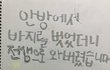 안방에서
바지를 벗었더니
전반은 와버렸습니다